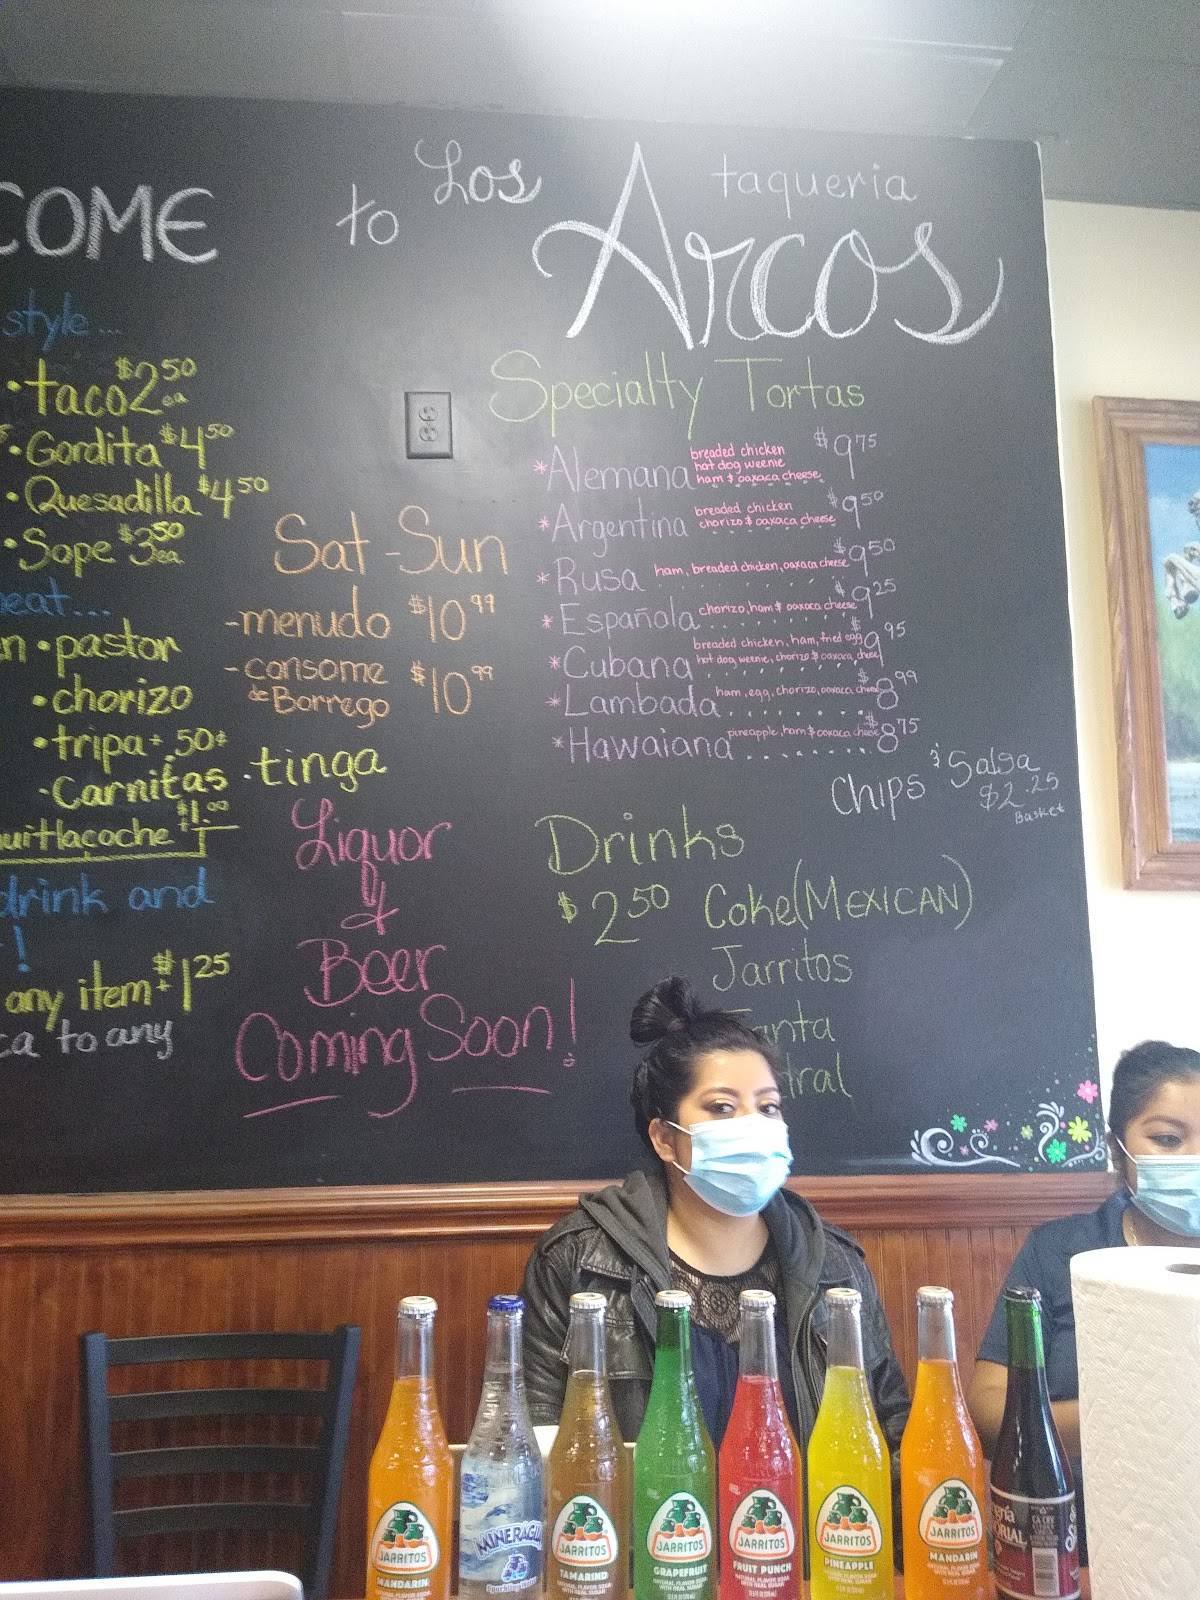 COME to Los Arcos
taqueria
style...
• taco $2 50 ea
• Gordita $4 50
• Quesadilla $4 50
• Sope $3 50 ea
• pastor
• chorizo
• tripa + .50¢
- Carnitas
• tinga
+ $1.00
drink and
!
any item + $1 25
to any
Sat - Sun
- menudo $10 99
- consome $10 99
de Borrego
Liquor
&
Beer
Coming Soon!
Specialty Tortas
* Alemana breaded chicken $9 75
hot dog weenie
ham & oaxaca cheese
* Argentina breaded chicken $9 50
chorizo & oaxaca cheese
* Rusa ham, breaded chicken, oaxaca cheese $9 50
* Española chorizo, ham & oaxaca cheese $9 25
* Cubana breaded chicken, ham, fried egg $9 95
hot dog weenie, chorizo & oaxaca cheese
* Lambada ham, egg, chorizo, oaxaca cheese $8 99
* Hawaiana pineapple, ham & oaxaca cheese $8 75
Chips & Salsa
$2.25
Basket
Drinks
$2 50 Coke (MEXICAN)
Jarritos
Fanta
JARRITOS
MANDARIN
MINERAGUA
Sparkling Water
JARRITOS
TAMARIND
JARRITOS
GRAPEFRUIT
NATURAL FLAVOR SODA
JARRITOS
FRUIT PUNCH
NATURAL FLAVOR SODA
WITH REAL SUGAR
JARRITOS
PINEAPPLE
NATURAL FLAVOR SODA
WITH REAL SUGAR
JARRITOS
MANDARIN
NATURAL FLAVOR SODA
WITH REAL SUGAR